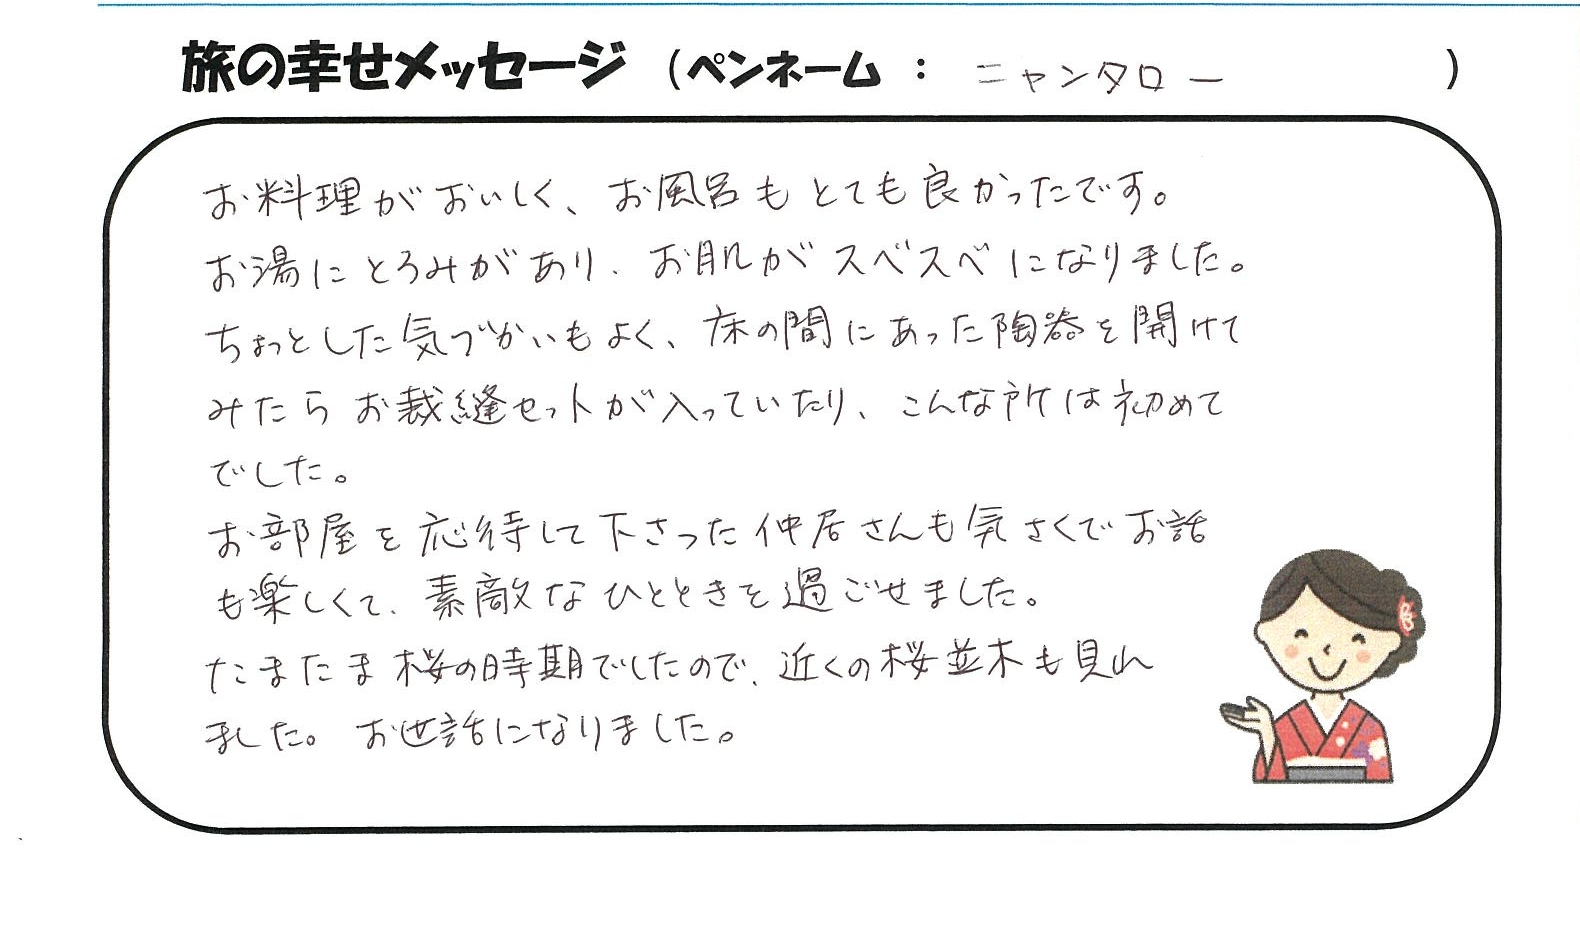 旅の幸せメッセージ (ペンネーム : ニャンタロー )
お料理がおいしく、お風呂もとても良かったです。
お湯にとろみがあり、お肌がスベスベになりました。
ちょっとした気づかいもよく、床の間にあった陶器を開けて
みたらお裁縫セットが入っていたり、こんな所は初めて
でした。
お部屋を応待して下さった仲居さんも気さくでお話
も楽しくて、素敵なひとときを過ごせました。
たまたま桜の時期でしたので、近くの桜並木も見れ
ました。お世話になりました。